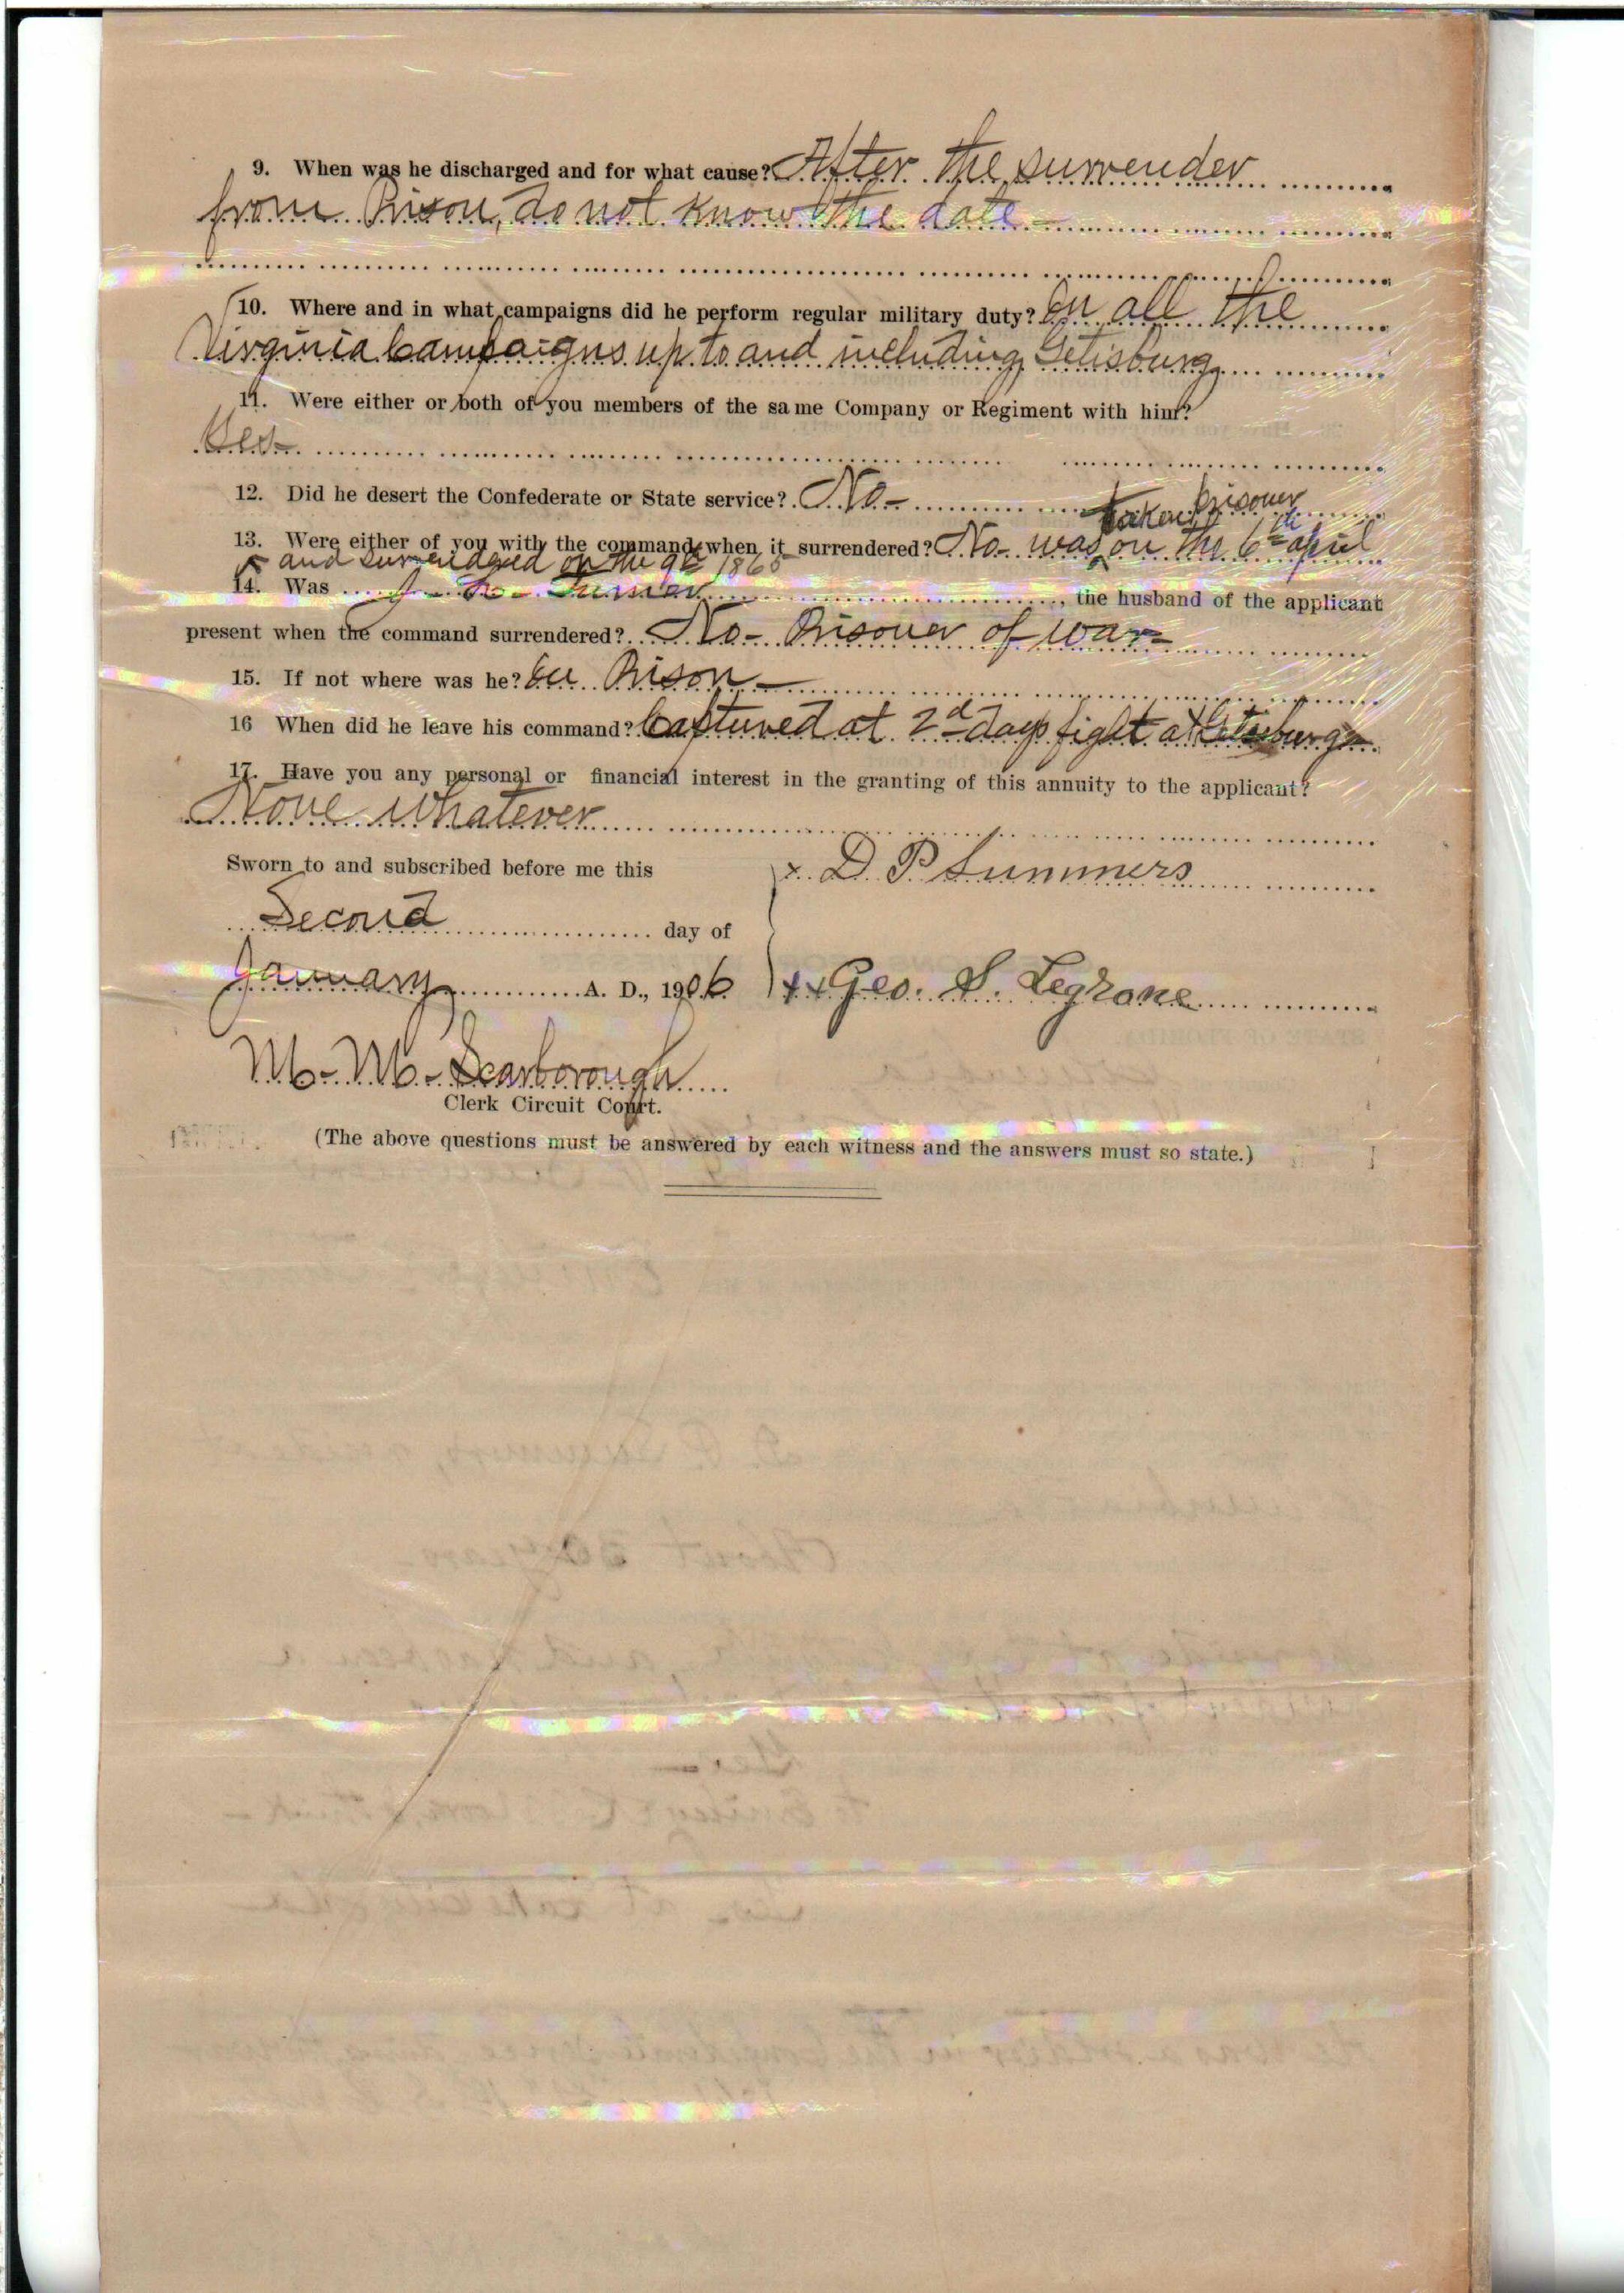 9. When was he discharged and for what cause? After the surrender
from Prison, do not know the date
10. Where and in what campaigns did he perform regular military duty? In all the
Virginia Campaigns up to and including Getisburg
11. Were either or both of you members of the same Company or Regiment with him?
Yes
12. Did he desert the Confederate or State service? No -
taken prisoner
13. Were either of you with the command when it surrendered? No - was on the 6th april
x and surrendered on the 9th 1865
14. Was J. , the husband of the applicant
present when the command surrendered? No - Prisoner of war -
15. If not where was he? In Prison -
16 When did he leave his command? Captured at 2d days fight at Getisburg
17. Have you any personal or financial interest in the granting of this annuity to the applicant?
None whatever
Sworn to and subscribed before me this
x D. P. Summers
Second day of
January A. D., 1906
xx Geo. S. Legrone
M. M. Scarborough
Clerk Circuit Court.
(The above questions must be answered by each witness and the answers must so state.)